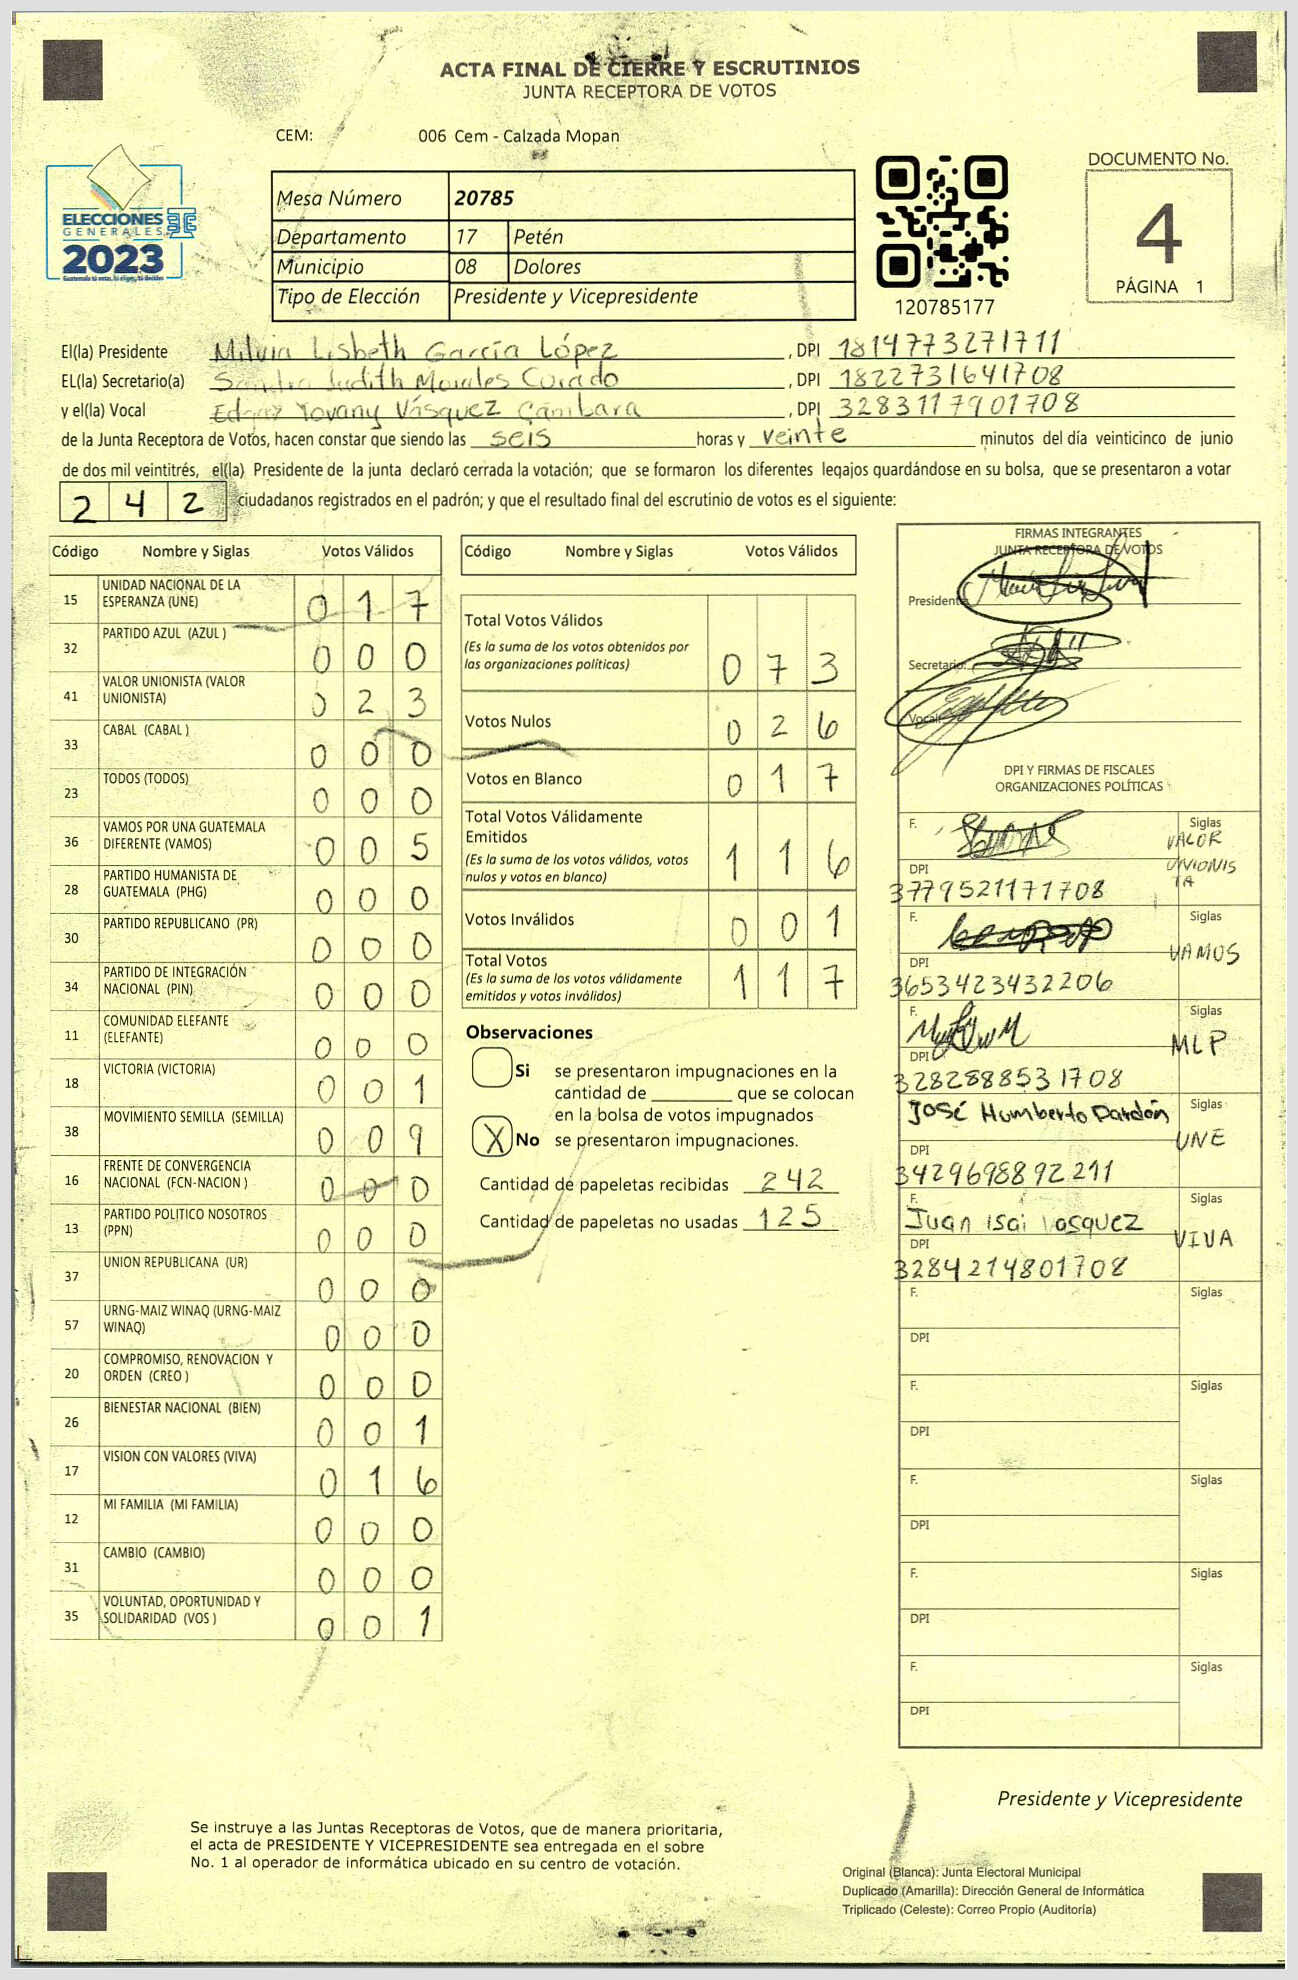 ACTA FINAL DE CIERRE Y ESCRUTINIOS
JUNTA RECEPTORA DE VOTOS
CEM: 006 Cem - Calzada Mopan
ELECCIONES
GENERALES
2023
Mesa Número 20785
Departamento 17 Petén
Municipio 08 Dolores
Tipo de Elección Presidente y Vicepresidente
120785177
DOCUMENTO No.
4
PÁGINA 1
El(la) Presidente Milvia Lisbeth García López, DPI 1814773271711
EL(la) Secretario(a) Sandra Judith Morales Curado, DPI 1822731641708
y el(la) Vocal Edgar Yovany Vásquez Cámbara, DPI 3283117901708
de la Junta Receptora de Votos, hacen constar que siendo las seis horas y veinte minutos del día veinticinco de junio
de dos mil veintitrés, el(la) Presidente de la junta declaró cerrada la votación; que se formaron los diferentes legajos quardándose en su bolsa, que se presentaron a votar
242 ciudadanos registrados en el padrón; y que el resultado final del escrutinio de votos es el siguiente:
Código Nombre y Siglas Votos Válidos
15 UNIDAD NACIONAL DE LA ESPERANZA (UNE) 017
32 PARTIDO AZUL (AZUL ) 000
41 VALOR UNIONISTA (VALOR UNIONISTA) 023
33 CABAL (CABAL ) 000
23 TODOS (TODOS) 000
36 VAMOS POR UNA GUATEMALA DIFERENTE (VAMOS) 005
28 PARTIDO HUMANISTA DE GUATEMALA (PHG) 000
30 PARTIDO REPUBLICANO (PR) 000
34 PARTIDO DE INTEGRACIÓN NACIONAL (PIN) 000
11 COMUNIDAD ELEFANTE (ELEFANTE) 000
18 VICTORIA (VICTORIA) 001
38 MOVIMIENTO SEMILLA (SEMILLA) 009
16 FRENTE DE CONVERGENCIA NACIONAL (FCN-NACION ) 000
13 PARTIDO POLITICO NOSOTROS (PPN) 000
37 UNION REPUBLICANA (UR) 000
57 URNG-MAIZ WINAQ (URNG-MAIZ WINAQ) 000
20 COMPROMISO, RENOVACION Y ORDEN (CREO ) 000
26 BIENESTAR NACIONAL (BIEN) 001
17 VISION CON VALORES (VIVA) 016
12 MI FAMILIA (MI FAMILIA) 000
31 CAMBIO (CAMBIO) 000
35 VOLUNTAD, OPORTUNIDAD Y SOLIDARIDAD (VOS ) 001
Código Nombre y Siglas Votos Válidos
Total Votos Válidos 073
(Es la suma de los votos obtenidos por
las organizaciones políticas)
Votos Nulos 026
Votos en Blanco 017
Total Votos Válidamente
Emitidos 116
(Es la suma de los votos válidos, votos
nulos y votos en blanco)
Votos Inválidos 001
Total Votos 117
(Es la suma de los votos válidamente
emitidos y votos inválidos)
Observaciones
Si se presentaron impugnaciones en la
cantidad de ________ que se colocan
en la bolsa de votos impugnados
X No se presentaron impugnaciones.
Cantidad de papeletas recibidas 242
Cantidad de papeletas no usadas 125
FIRMAS INTEGRANTES
JUNTA RECEPTORA DE VOTOS
Presidente:
Secretario:
Vocal:
DPI Y FIRMAS DE FISCALES
ORGANIZACIONES POLÍTICAS
F. Siglas VALOR UNIONISTA
DPI 3779521171708
F. Siglas VAMOS
DPI 3653423432206
F. Siglas MLP
DPI 3282888531708
José Humberto Pardón Siglas UNE
DPI 3429698892211
F. Juan Isai Vasquez Siglas VIVA
DPI 3284214801708
F. Siglas
DPI
F. Siglas
DPI
F. Siglas
DPI
F. Siglas
DPI
F. Siglas
DPI
Presidente y Vicepresidente
Se instruye a las Juntas Receptoras de Votos, que de manera prioritaria,
el acta de PRESIDENTE Y VICEPRESIDENTE sea entregada en el sobre
No. 1 al operador de informática ubicado en su centro de votación.
Original (Blanca): Junta Electoral Municipal
Duplicado (Amarilla): Dirección General de Informática
Triplicado (Celeste): Correo Propio (Auditoría)